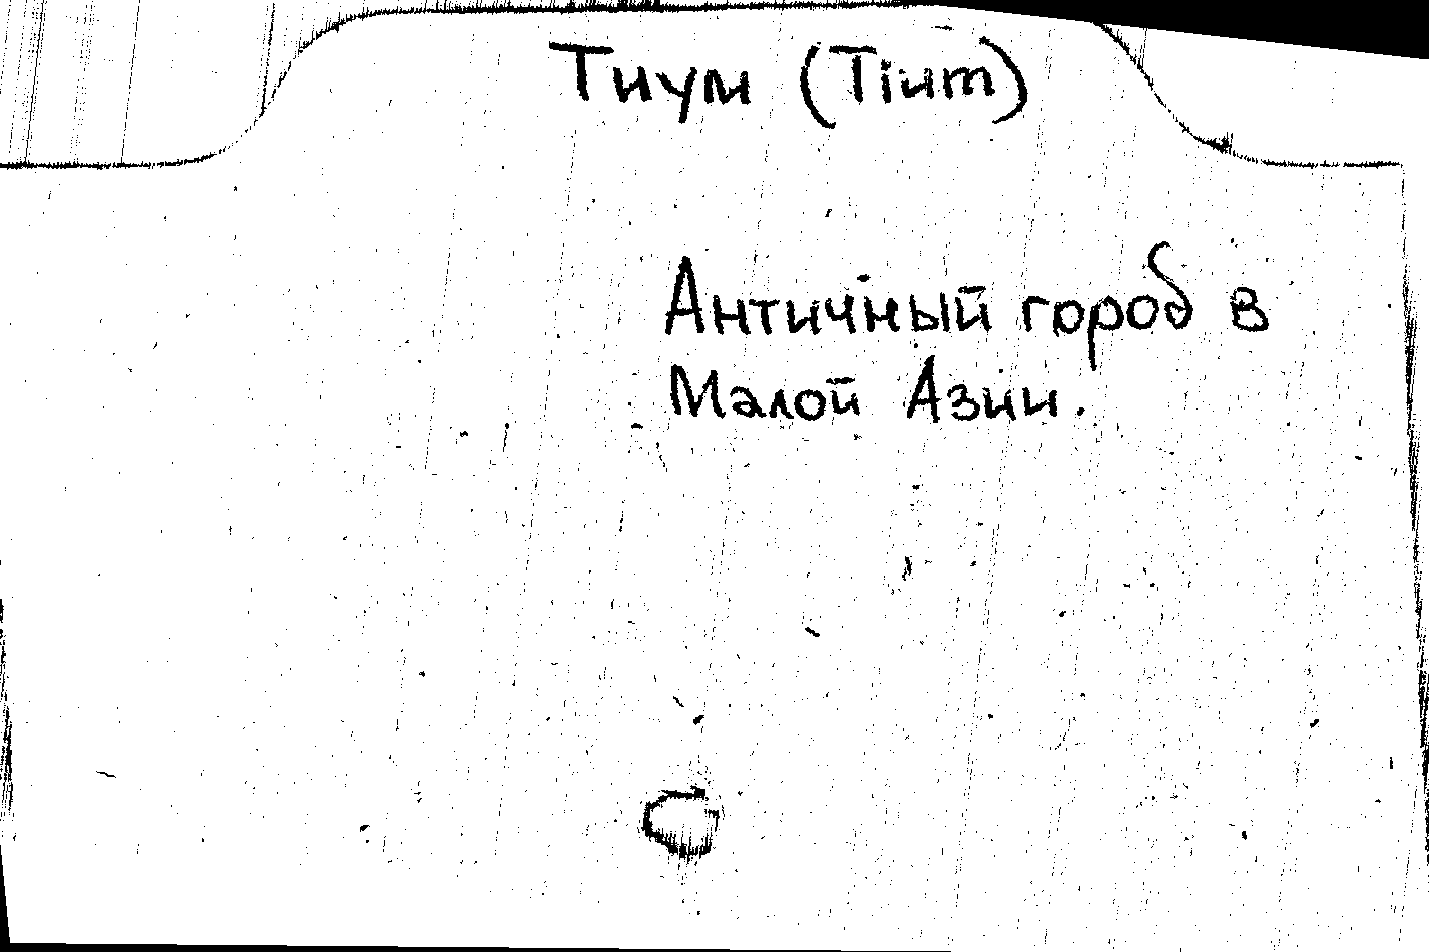 Тиум (Tium)
Античный город в
Малой Азии.